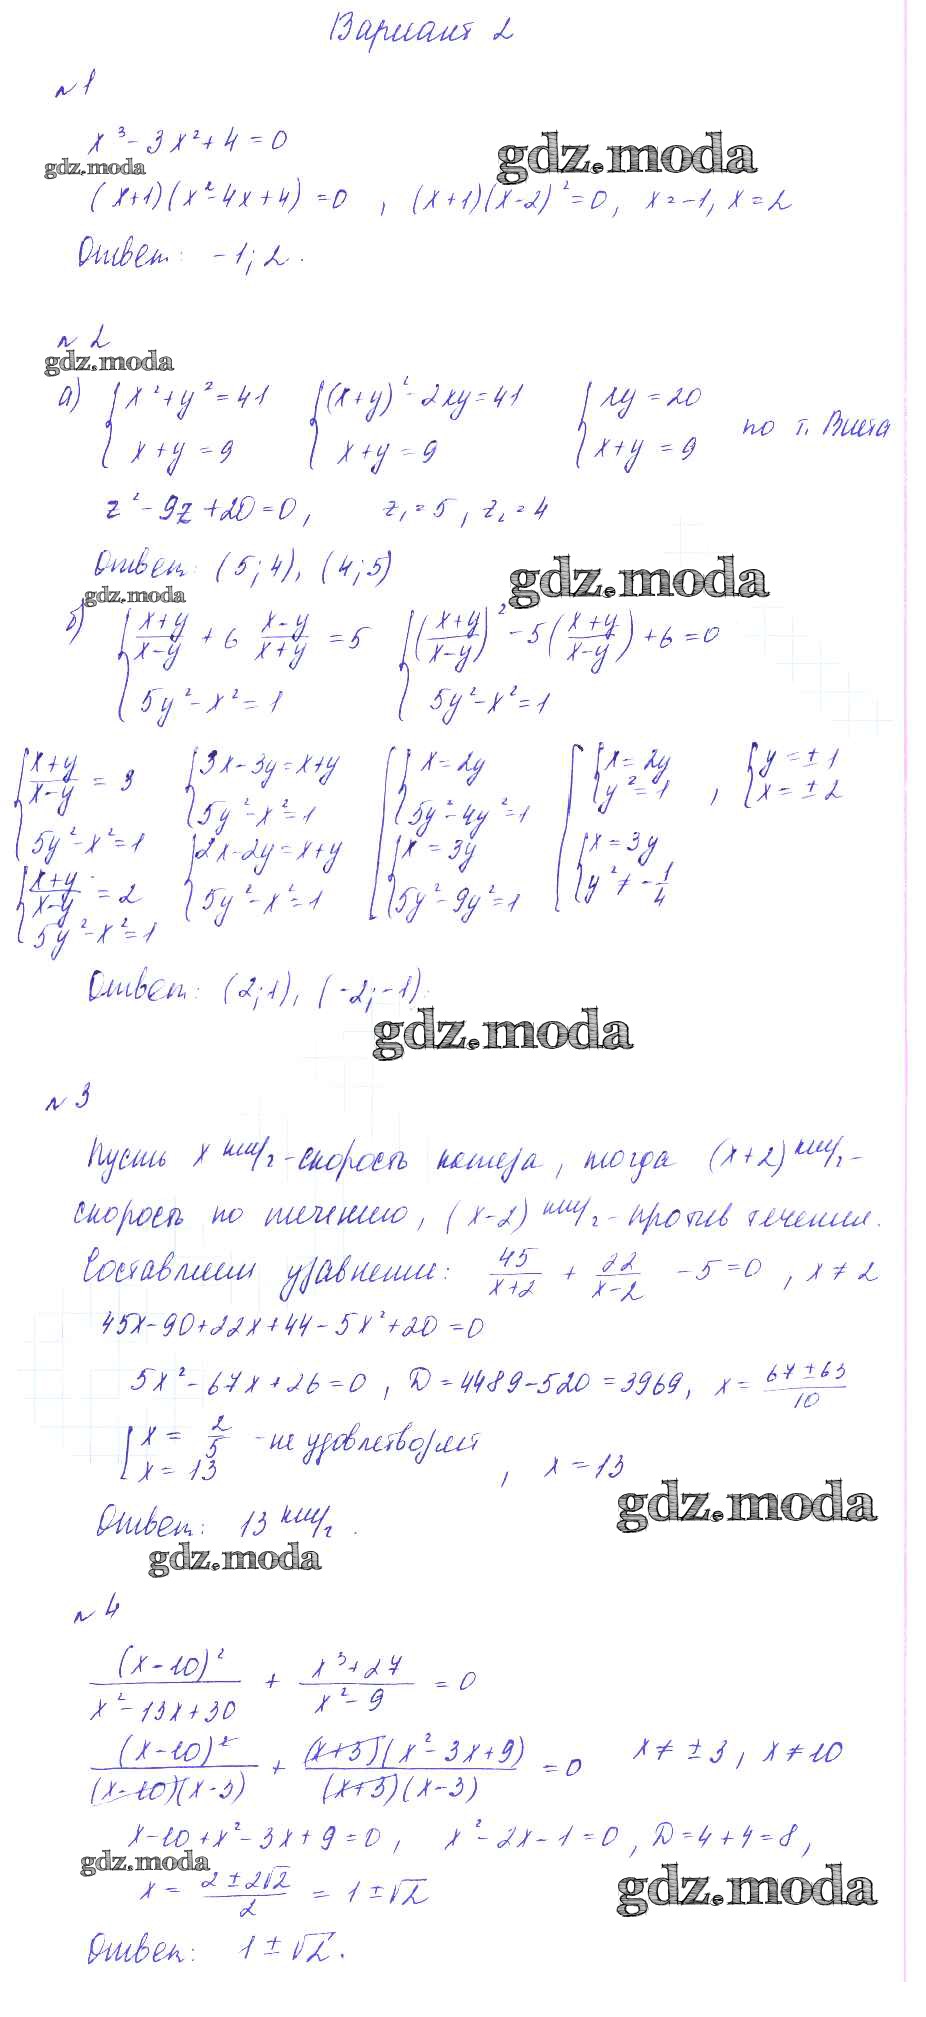 Вариант 2
№1
x³-3x²+4=0
gdz.moda gdz.moda
(x+1)(x²-4x+4)=0, (x+1)(x-2)²=0, x=-1, x=2
Ответ: -1; 2.
№2
gdz.moda
а) {x²+y²=41 {(x+y)²-2xy=41 {xy=20
x+y=9 x+y=9 x+y=9 по т. Виета
z²-9z+20=0, z₁=5, z₂=4
Ответ: (5;4), (4;5)
gdz.moda gdz.moda
б) {(x+y)/(x-y) + 6 (x-y)/(x+y) = 5 {((x+y)/(x-y))² - 5((x+y)/(x-y)) + 6 = 0
5y²-x²=1 5y²-x²=1
{(x+y)/(x-y) = 3 {3x-3y=x+y [{x=2y [{x=2y {y=±1
5y²-x²=1 5y²-x²=1 5y²-4y²=1 y²=1 , x=±2
{(x+y)/(x-y) = 2 {2x-2y=x+y {x=3y {x=3y
5y²-x²=1 5y²-x²=1 5y²-9y²=1 y²≠-1/4
Ответ: (2;1), (-2;-1).
gdz.moda
№3
Пусть x км/г - скорость катера, тогда (x+2) км/г -
скорость по течению, (x-2) км/г - против течения.
Составляем уравнение: 45/(x+2) + 22/(x-2) - 5=0, x≠2
45x-90+22x+44-5x²+20=0
5x²-67x+26=0, D=4489-520=3969, x=(67±63)/10
[x=2/5 - не удовлетворяет
x=13 , x=13
gdz.moda
Ответ: 13 км/г.
gdz.moda
№4
(x-10)²/(x²-13x+30) + (x³+27)/(x²-9) = 0
(x-10)²/((x-10)(x-3)) + (x+3)(x²-3x+9)/((x+3)(x-3)) = 0 x≠±3, x≠10
x-10+x²-3x+9=0, x²-2x-1=0, D=4+4=8,
gdz.moda gdz.moda
x=(2±2√2)/2 = 1±√2
Ответ: 1±√2.